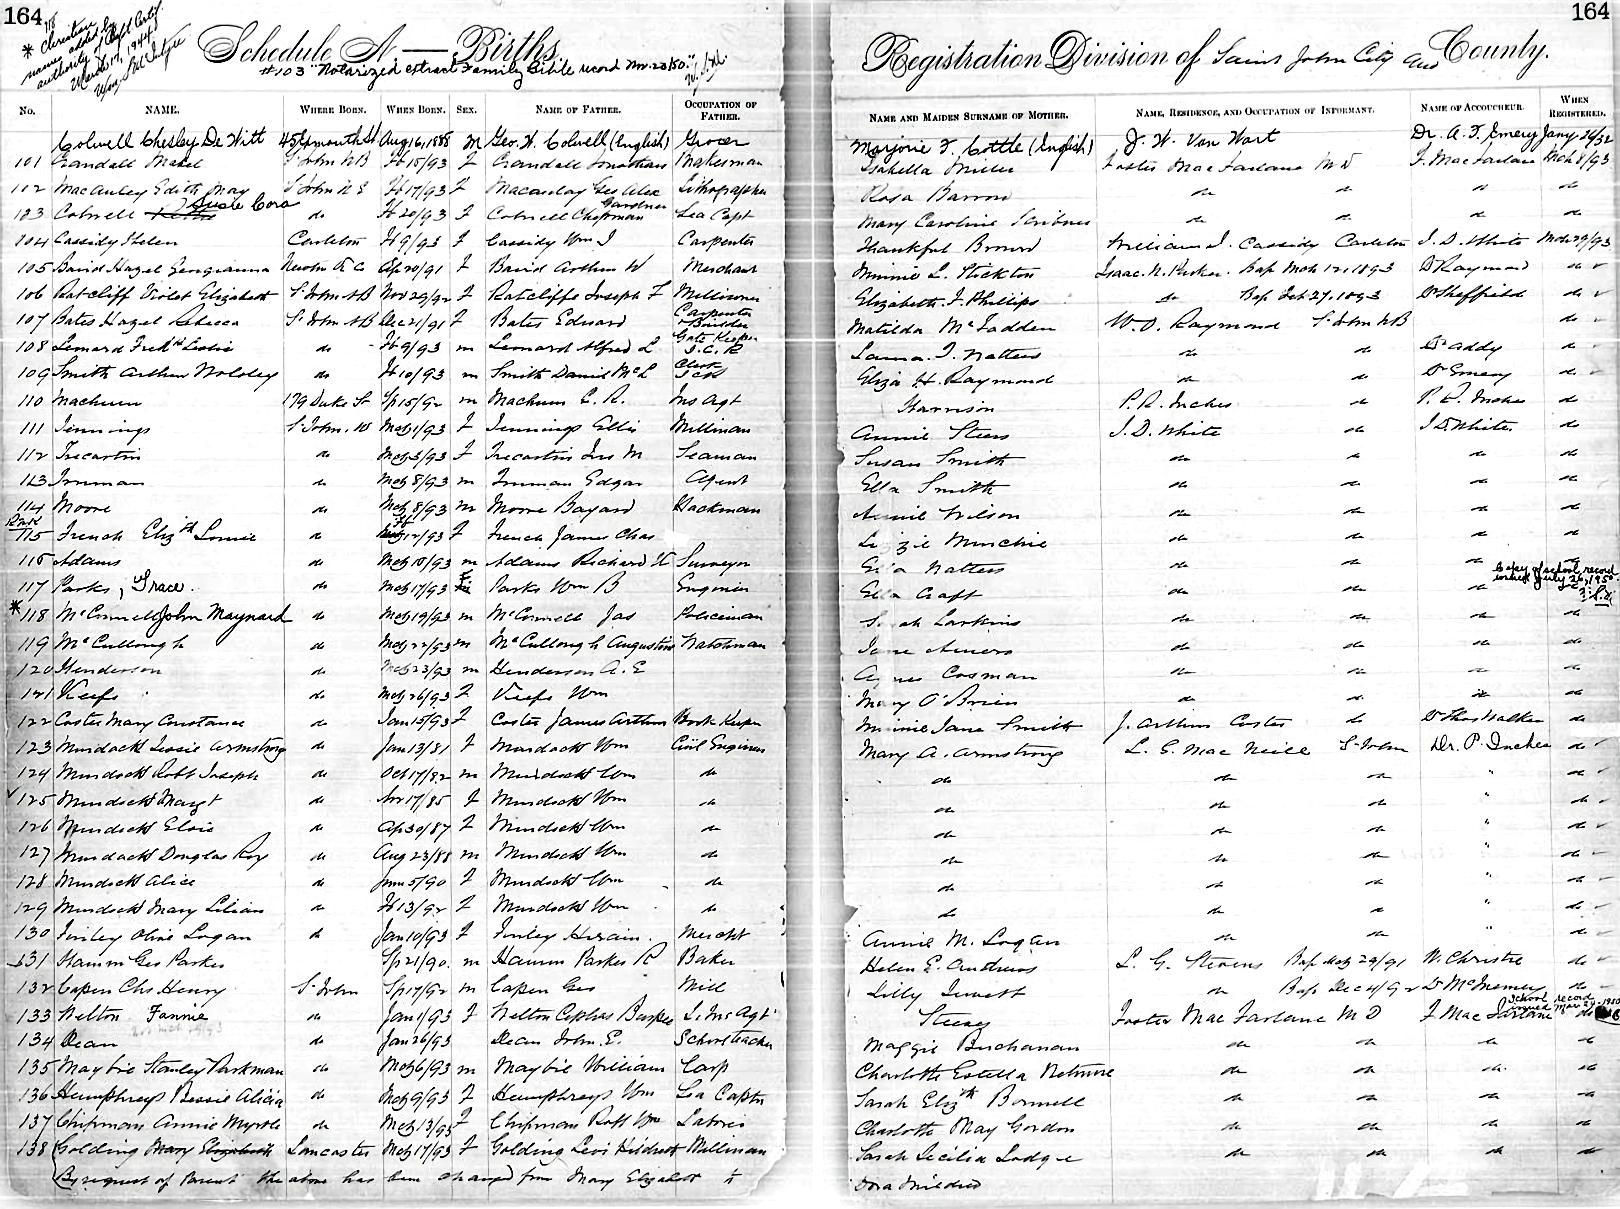 164
* 118 Christian name added by authority of Bapt Certif. March 17, 1944 Wm. McIntyre
Schedule A — Births.
#103 "Notarized extract Family Bible record Nov. 23/50."
No. NAME. WHERE BORN. WHEN BORN. SEX. NAME OF FATHER. OCCUPATION OF FATHER.
Colwell Chesley De Witt Aug 16, 1888 M Geo. W. Colwell (English) Grocer
101 Crandall Mabel St John NB Fb 15/93 F Crandall Jonathan
112 MacAuley Edith May St John N B Fb 17/93 F Macaulay Geo Alex Lithographer
103 Colwell Susie Cora do Fb 20/93 F Colwell Chapman Gardner Sea Capt
104 Cassidy Helen Carleton Fb 9/93 F Cassidy Wm J Carpenter
105 Baird Hazel Georgianna Ap 20/91 F Baird Arthur W Merchant
106 Ratcliff Violet Elizabeth St John NB Nov 29/92 F Ratcliffe Joseph F Millwoner
107 Bates Hazel Rebecca St John NB Dec 21/91 F Bates Edward Carpenter & Builder
108 Leonard Fredk Leslie do Fb 9/93 m Leonard Alfred L Gate Keeper I.C.R
109 Smith Arthur Wolsley do Fb 10/93 m Smith Daniel McL Clerk ICR
110 Machum 179 Duke St Sp 15/92 m Machum E. R. Ins Agt
111 Jennings St John. W Mch 1/93 F Jennings Ellis Millman
112 Trecartin do Mch 3/93 F Trecartin Jas M Seaman
113 Inman do Mch 8/93 m Inman Edgar Agent
114 Moore do Mch 8/93 m Moore Bayard Hackman
115 French Elizth Louise do Fb 12/93 F French James Chas
116 Adams do Mch 10/93 m Adams Richard W Surveyor
117 Parks, Grace. do Mch 17/93 F Parks Wm B Engineer
* 118 McConnell John Maynard do Mch 19/93 m McConnell Jas Policeman
119 McCullough do Mch 22/93 m McCullough Augustus Watchman
120 Henderson do Mch 23/93 m Henderson A. E
121 Keefe do Mch 26/93 F Keefe Wm
122 Coster Mary Constance do Jan 15/93 F Coster James Arthur Book Keeper
123 Murdoch Jessie Armstrong do Jan 13/81 F Murdoch Wm Civil Engineer
124 Murdoch Robt Joseph do Oct 17/82 m Murdoch Wm do
125 Murdoch Margt do Nov 17/85 F Murdoch Wm do
126 Murdoch Elsie do Ap 30/87 F Murdoch Wm do
127 Murdoch Douglas Roy do Aug 23/88 m Murdoch Wm do
128 Murdoch Alice do June 5/90 F Murdoch Wm do
129 Murdoch Mary Lilian do Fb 13/92 F Murdoch Wm do
130 Finley Olive Logan do Jan 10/93 F Finley Hiram. Mercht
131 Hamm Geo Parker Sp 21/90. m Hamm Parker R Baker
132 Capen Chs. Henry St John Sp 17/92 m Capen Geo Mill
133 Belton Fannie do Jan 1/93 F Belton Cephas Barker L. Ins Agt
134 Dean do Jan 26/93 Dean John. E. School teacher
135 Maybie Stanley Parkman do Mch 6/93 m Maybie William Carp
136 Humphreys Bessie Alicia do Mch 9/93 F Humphreys Wm Sea Captn
137 Chipman Annie Myrtle do Mch 13/93 F Chipman Robt Wm Laborer
138 Golding Mary Elizabeth Lancaster Mch 17/93 F Golding Levi Hildreth Millman
By request of Parent the above has been changed from Mary Elizabeth to
164
Registration Division of Saint John City and County.
NAME AND MAIDEN SURNAME OF MOTHER. NAME, RESIDENCE, AND OCCUPATION OF INFORMANT. NAME OF ACCOUCHEUR. WHEN REGISTERED.
Marjorie F. Cottle (English) J. W. Van Wart Dr. A. F. Emery Jany 26/32
Isabella Miller Foster MacFarlane M D F. MacFarlane Mch 8/93
Rosa Barrow do do do
Mary Caroline Scribner do do do
Thankful Brown William J. Cassidy Carleton J. D. White Mch 29/93
Minnie L. Stockton Isaac N. Parker. Bap Mch 12, 1893 Dr Raymond do
Elizabeth. J. Phillips do Bap. Feb 27, 1893 Dr Sheffield do
Matilda McFadden W. O. Raymond St John NB do
Laura. J. Watters do do Dr Addy do
Eliza H. Raymond do do Dr Emery do
Harrison P. R. Inches do P. R. Inches do
Annie Steers J. D. White do J D White. do
Susan Smith do do do do
Ella Smith do do do do
Annie Wilson do do do do
Lizzie Minchie do do do do
Ella Watters do do do do
Ella Craft do do do Copy of school record issued July 26, 1950
Sarah Larkins do do do do
Jane Amero do do do do
Agnes Cosman do do do do
Mary O'Brien do do do do
Minnie Jane Smith J. Arthur Coster do Dr Thos Walker do
Mary A. Armstrong L. G. MacNeill St John Dr. P. Inches do
do do do " do
do do do " do
do do do " do
do do do " do
do do do " do
do do do " do
Annie M. Logan do do do
Helen E. Andrews L. G. Stevens Bap Mch 29/91 W. Christie do
Lilly Jewett do Bap Dec 4/92 Dr McInerney do
Steeves Foster MacFarlane M D F MacFarlane do School record
Maggie Buchanan do do do do
Charlotte Estella Wetmore do do do do
Sarah Elizth Bonnell do do do do
Charlotte May Gordon do do do do
Sarah Cecilia Lodge do do do do
Dora Mildred